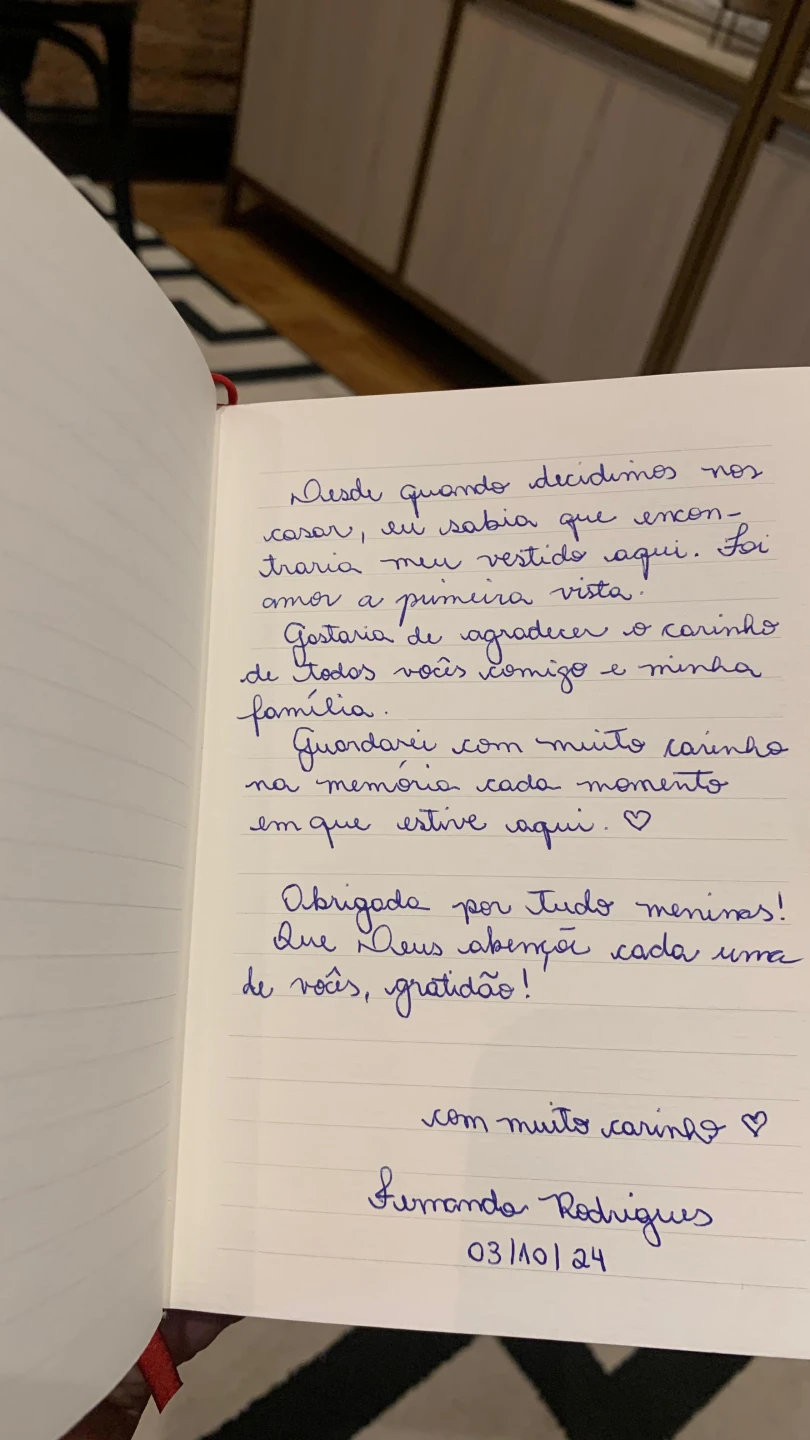 Desde quando decidimos nos
casar, eu sabia que encon-
traria meu vestido aqui. Foi
amor a primeira vista.
Gostaria de agradecer o carinho
de todos vocês comigo e minha
família.
Guardarei com muito carinho
na memória cada momento
em que estive aqui. ♡
Obrigada por tudo meninas!
Que Deus abençõe cada uma
de vocês, gratidão!
com muito carinho ♡
Fernanda Rodrigues
03/10/24